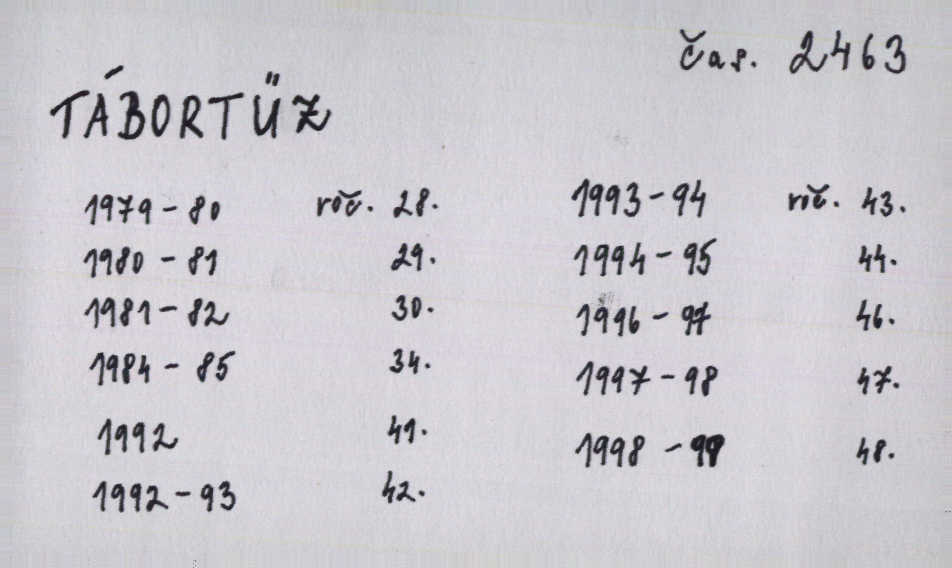 čas. 2463
TÁBORTŰZ
1979 - 80 roč. 28.
1980 - 81 29.
1981 - 82 30.
1984 - 85 34.
1992 41.
1992 - 93 42.
1993 - 94 roč. 43.
1994 - 95 44.
1996 - 97 46.
1997 - 98 47.
1998 - 99 48.